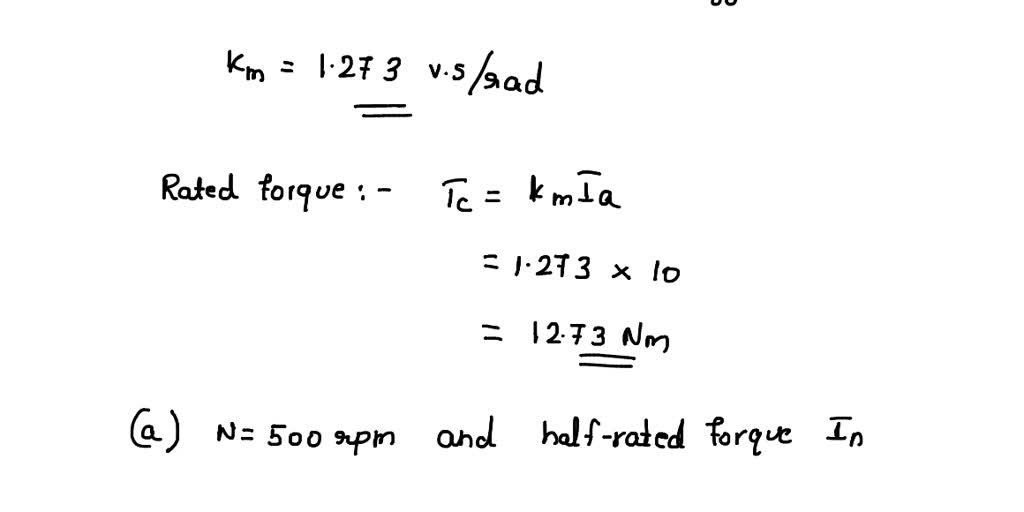 Km = 1.273 v.s/rad
Rated torque :- Tc = KmIa
= 1.273 x 10
= 12.73 Nm
(a) N = 500 rpm and half-rated torque In